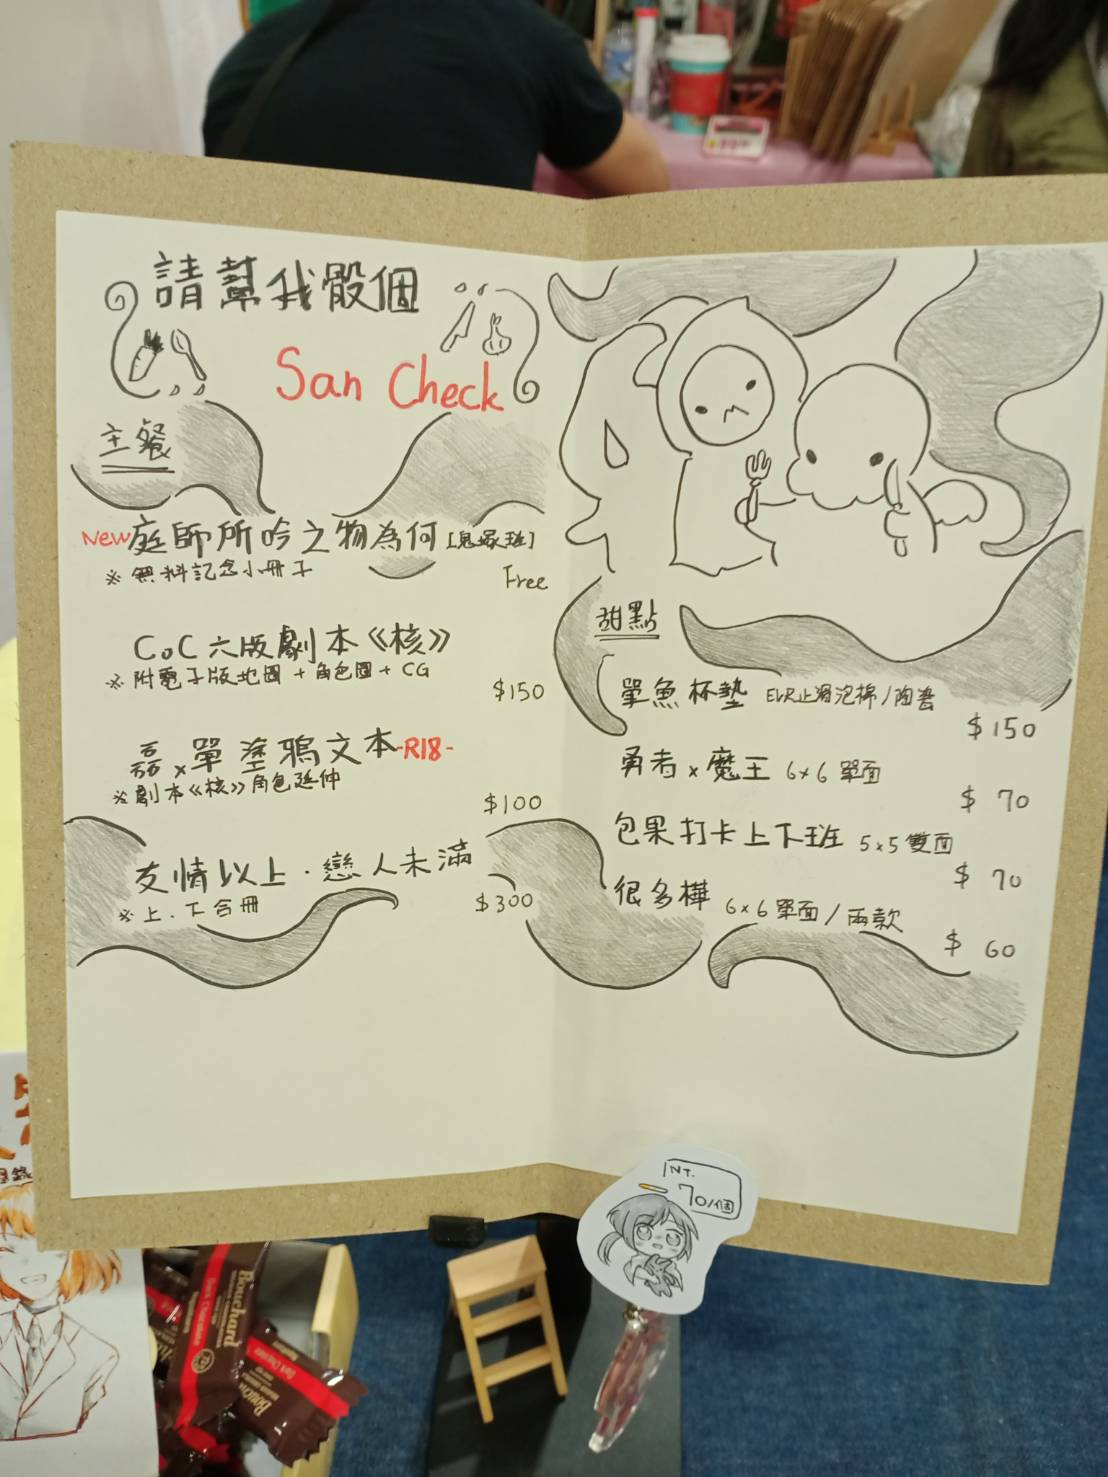 請幫我骰個
San Check
主餐
New 庭師所吟之物為何 [鬼塚班]
※ 無料記念小冊子
Free
CoC 六版劇本《核》
※ 附電子版地圖 + 角色圖 + CG
$150
磊 x 單 塗鴉文本 -R18-
※ 劇本《核》角色延伸
$100
友情以上．戀人未滿
※ 上．下合冊
$300
甜點
單魚杯墊 EVA止滑泡棉 / 陶瓷
$150
勇者 x 魔王 6x6 單面
$ 70
包果打卡上下班 5x5 雙面
$ 70
很多樺 6x6 單面 / 兩款
$ 60
NT.
70/個
Bouchard
Bouchard